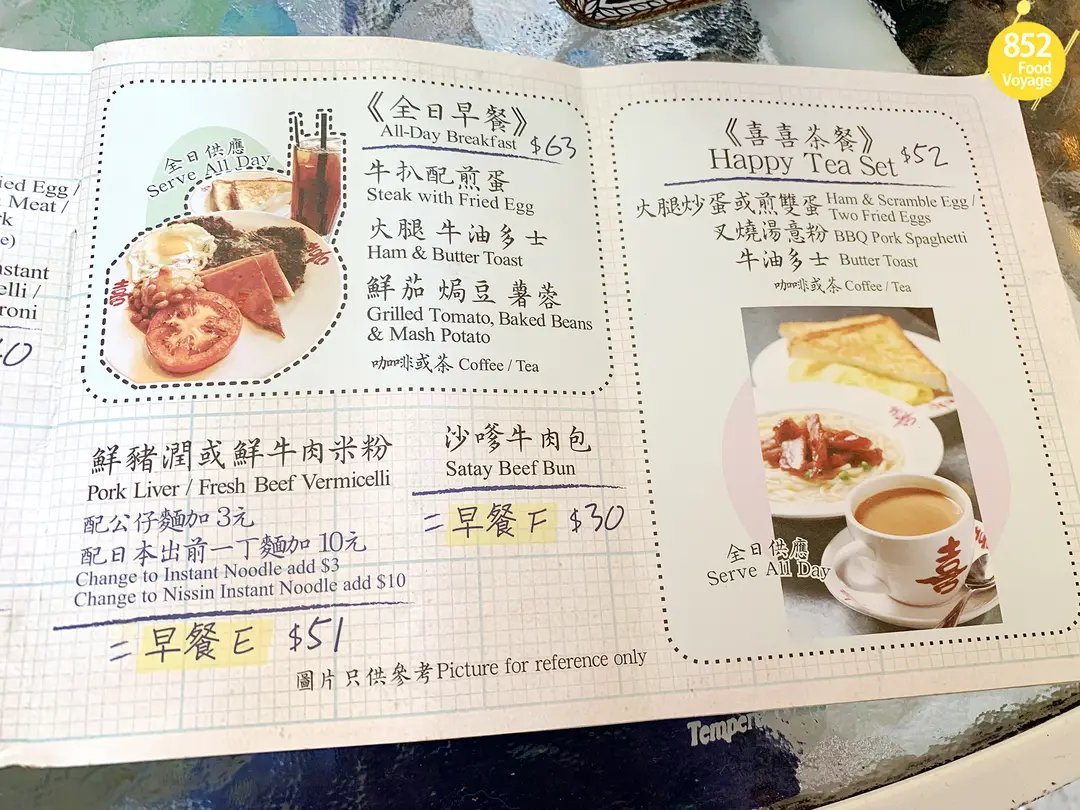 ied Egg /
Meat /
rk
e)
stant
elli /
roni
全日供應
Serve All Day
《全日早餐》
All-Day Breakfast $63
牛扒配煎蛋
Steak with Fried Egg
火腿 牛油多士
Ham & Butter Toast
鮮茄 焗豆 薯蓉
Grilled Tomato, Baked Beans
& Mash Potato
咖啡或茶 Coffee / Tea
喜
喜
鮮豬潤或鮮牛肉米粉
Pork Liver / Fresh Beef Vermicelli
配公仔麵加 3元
配日本出前一丁麵加 10元
Change to Instant Noodle add $3
Change to Nissin Instant Noodle add $10
= 早餐 E $51
沙嗲牛肉包
Satay Beef Bun
= 早餐 F $30
圖片只供參考 Picture for reference only
《喜喜茶餐》
Happy Tea Set $52
火腿炒蛋或煎雙蛋 Ham & Scramble Egg /
Two Fried Eggs
叉燒湯意粉 BBQ Pork Spaghetti
牛油多士 Butter Toast
咖啡或茶 Coffee / Tea
全日供應
Serve All Day
喜
852
Food
Voyage
Tempera